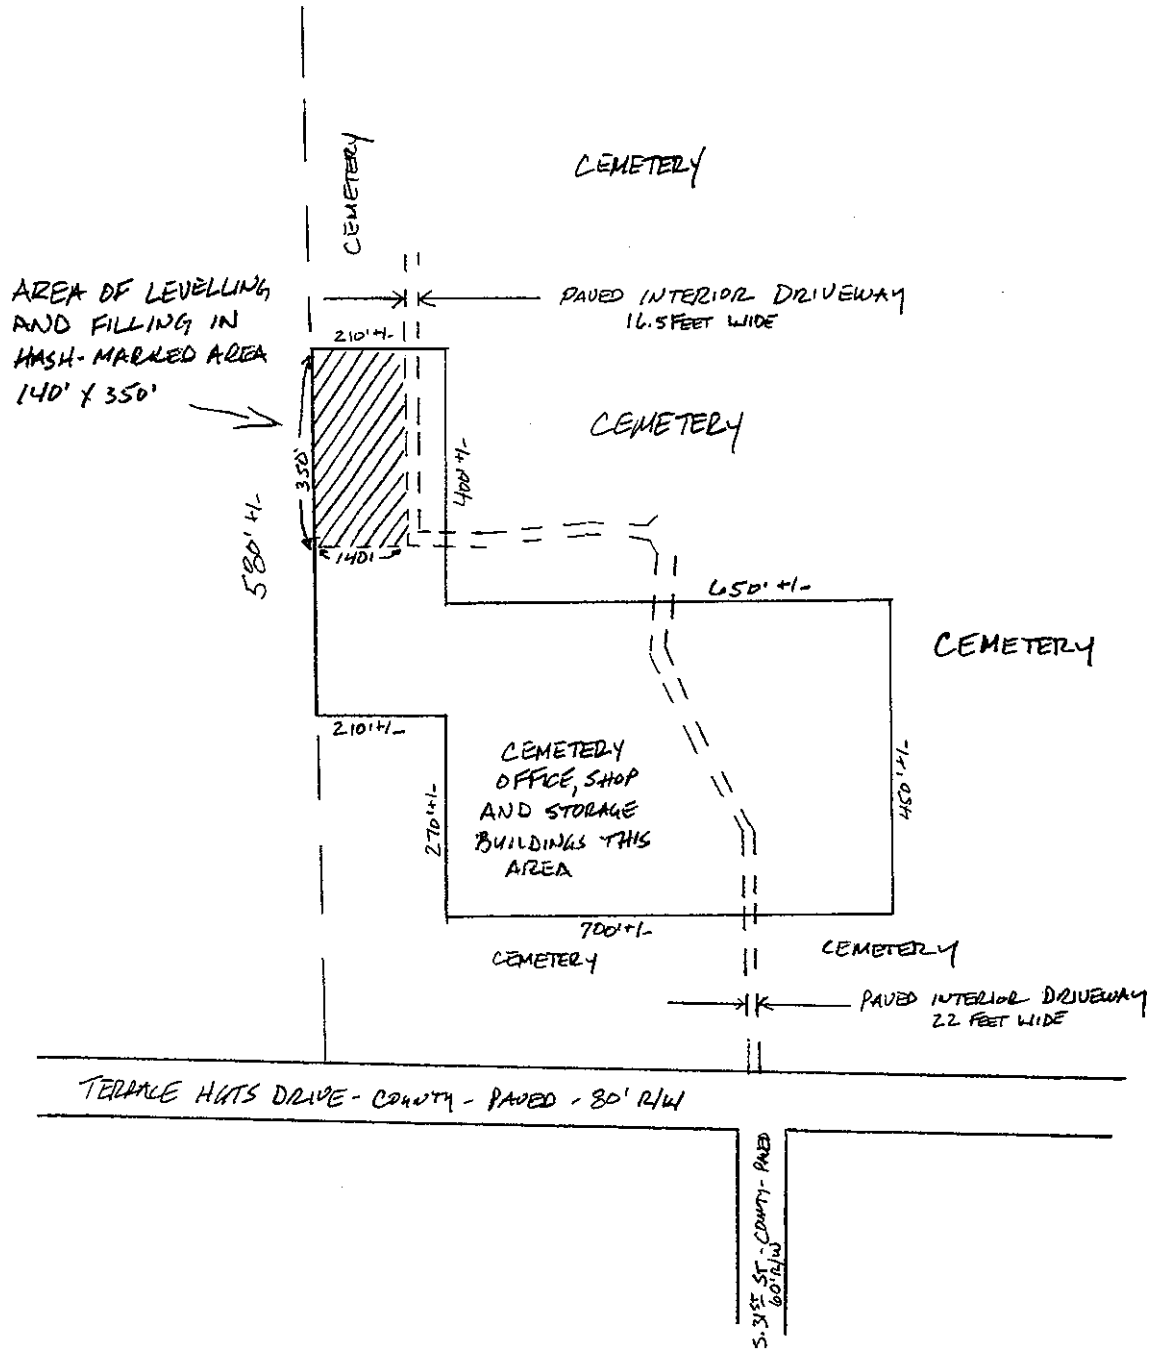 CEMETERY
CEMETERY
AREA OF LEVELLING
AND FILLING IN
HASH-MARKED AREA
140' X 350'
PAVED INTERIOR DRIVEWAY
16.5 FEET WIDE
210'+/-
CEMETERY
350'
400'+/-
580'+/-
140'
650'+/-
CEMETERY
210'+/-
CEMETERY
OFFICE, SHOP
AND STORAGE
BUILDINGS THIS
AREA
270'+/-
450'+/-
700'+/-
CEMETERY
CEMETERY
PAVED INTERIOR DRIVEWAY
22 FEET WIDE
TERRACE HGTS DRIVE - COUNTY - PAVED - 80' R/W
S. 31ST ST - COUNTY - PAVED
60' R/W